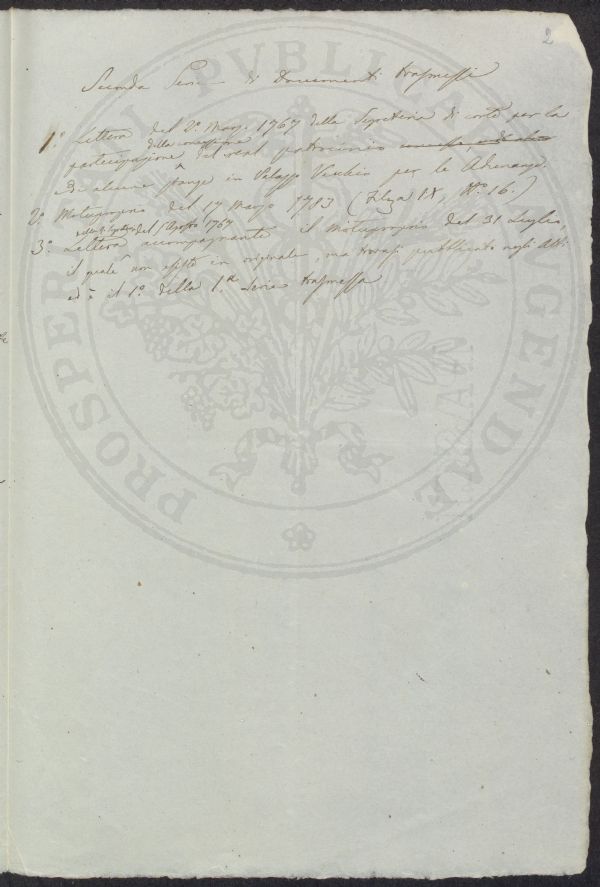 2
Seconda Serie di Documenti trasmessi
1.° Lettera del 2.° Marzo 1767 della Segreteria di corte per la
della concessione
partecipazione del real patrocinio
e di alcune stanze in Palazzo Vecchio per le Adunanze.
2.° Motuproprio del 17 Marzo 1783 (Filza IX, N.° 16.)
del 1 Agosto 1767
3.° Lettera accompagnante il Motuproprio del 31 Luglio,
il quale non esiste in originale, ma trovasi pubblicato negli Atti
ed è il 1.° della 1.a Serie trasmessa
PROSPERITATI PVBLICAE AVGENDAE